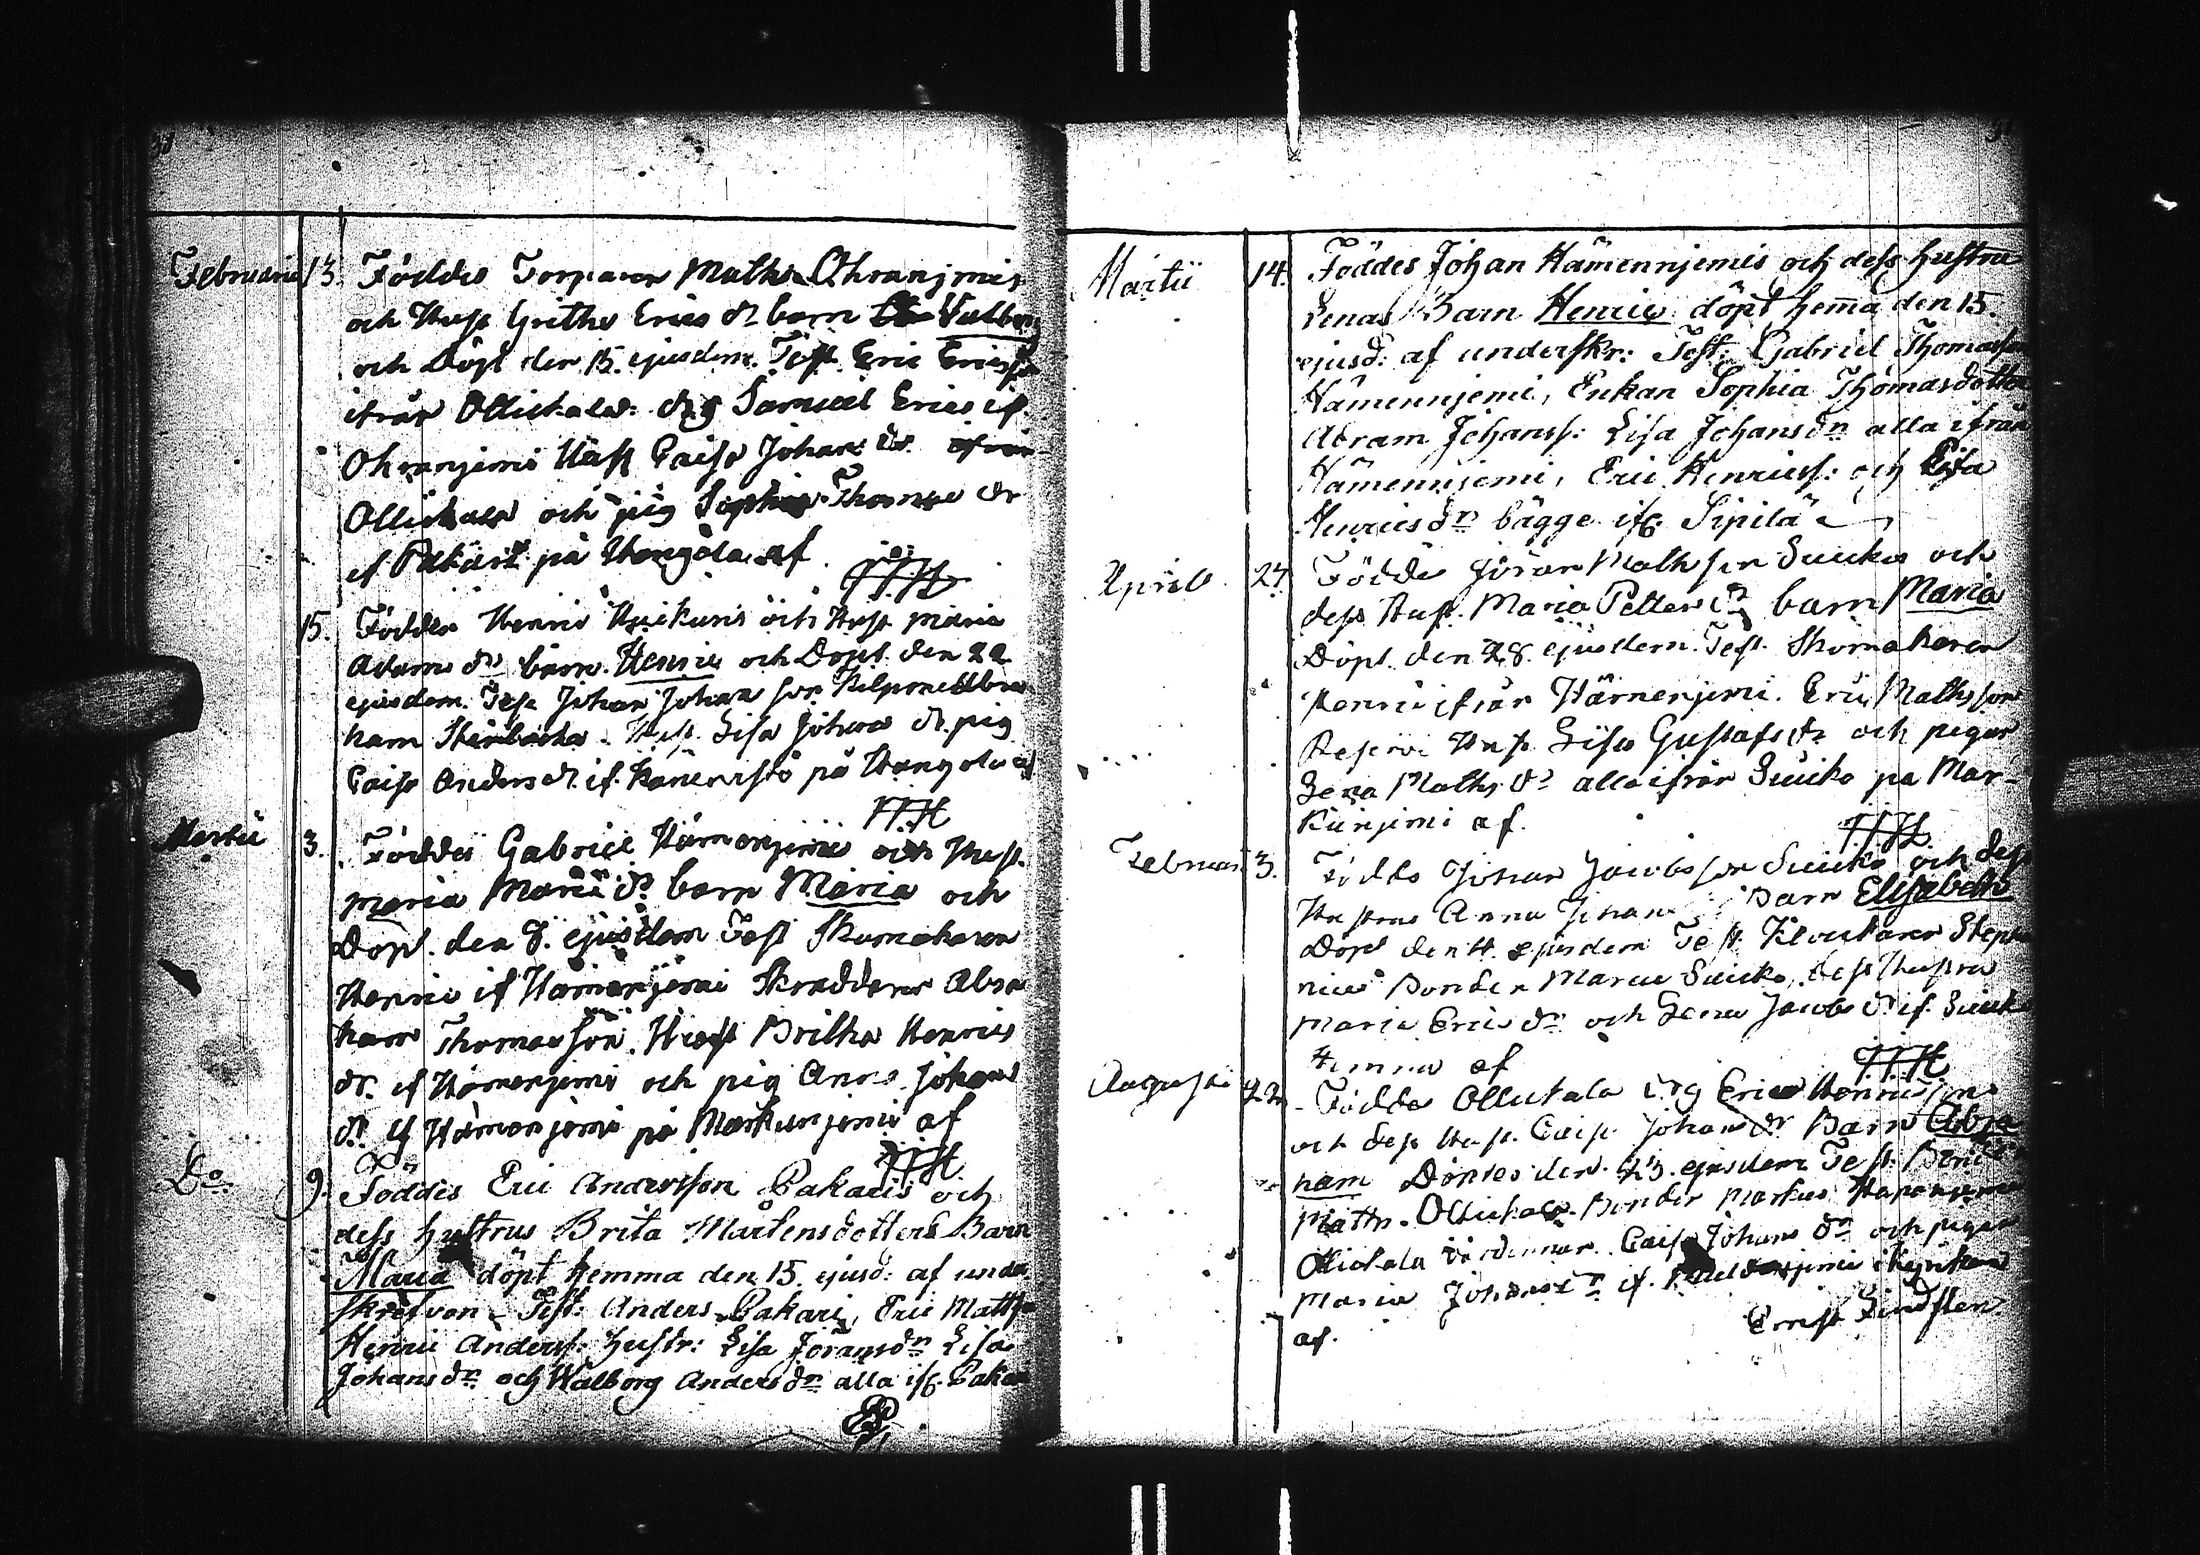 Februarii 13. Föddes Torparen Maths Ohranjemis
och Hust Grithe Erics dr barn Valborg
och Döpt den 15. ejusdem. Test. Eric Ericss
ifrån Ollickala: drg Samuel Erics if.
Ohranjemi Hust Caisa Johans dr. ifrån
Ollickala och pig Sophia Thomae dr
if Pakari på Hangola af
15. Föddes Henric Hust maria
Adams dr barn. Henric och Döpt den 22
ejusdem. Test Johan Johans son Abra
ham Hust. Lisa Johans dr. pig
Caisa Anders dr. if. på Hangola af
Martii 3. Föddes Gabriel Hämenjemis och Hust.
maria dr barn Maria och
Döpt. den 8. ejusdem Test Skomakaren
Henric if Hämenjemi Skräddaren Abra
ham Thomasson. Hust Britha Henrics
dr. if Hämenjemi och pig Anna Johans
dr. if Hämenjemi på Markunjemi af
Do. 9. Föddes Eric Andersson Pakaris och
dess hustrus Brita Mårtensdotters Barn
Maria döpt hemma den 15. ejusd: af under
skrefven. Test: Anders Pakari, Eric Matts
Henric Anderss: hustr: Lisa Jöransdr. Lisa
Johansdr. och Walborg Andersdr. alla ifr. Pakari
Martii 14. Föddes Johan Hämennjemis och dess hustru
Lenas Barn Henric döpt hemma den 15.
ejusd: af underskr: Test: Gabriel Thomasson
Hämennjemi, Enkan Sophia Thomasdotter
Abram Johanss: Lisa Johansdr. alla ifrån
Hämennjemi, Eric Henricss: och Lisa
Henricsdr. bägge ifr. Sipilä
April 24. Föddes Jöran Mathsson Suicko och
dess Hust. Maria Petters dr barn Maria
Döpt. den 28. ejusdem. Test. Skomakaren
Henric ifrån Hämenjemi. Eric Mathsson
Hust. Lisa Gustafs dr och pigan
Lena Maths dr alla ifrån Suicko på Mar-
kunjemi af.
Februari 3. Föddes Johan Jacobsson Suicko och dess
Hustrus Anna Johans Barn Elisabeth
Döpt den 4. ejusdem Test. Klockaren Steph
Bonden Marcus Suicko, dess Hustru
Maria Erics dr och Lena Jacobs dr if. Suick
af
Augusti 22. Föddes Ollickala drg Erics Henricsson
och dess Hust. Caisa Johans dr Barn Abra
ham Döptes den. 23. ejusdem Test. Bonden
Matts. Ollickala. Bonden Markus
Ollickala Caisa Johans dr och pigan
Maria Johans dr if.
Ernst Lindsten
af.